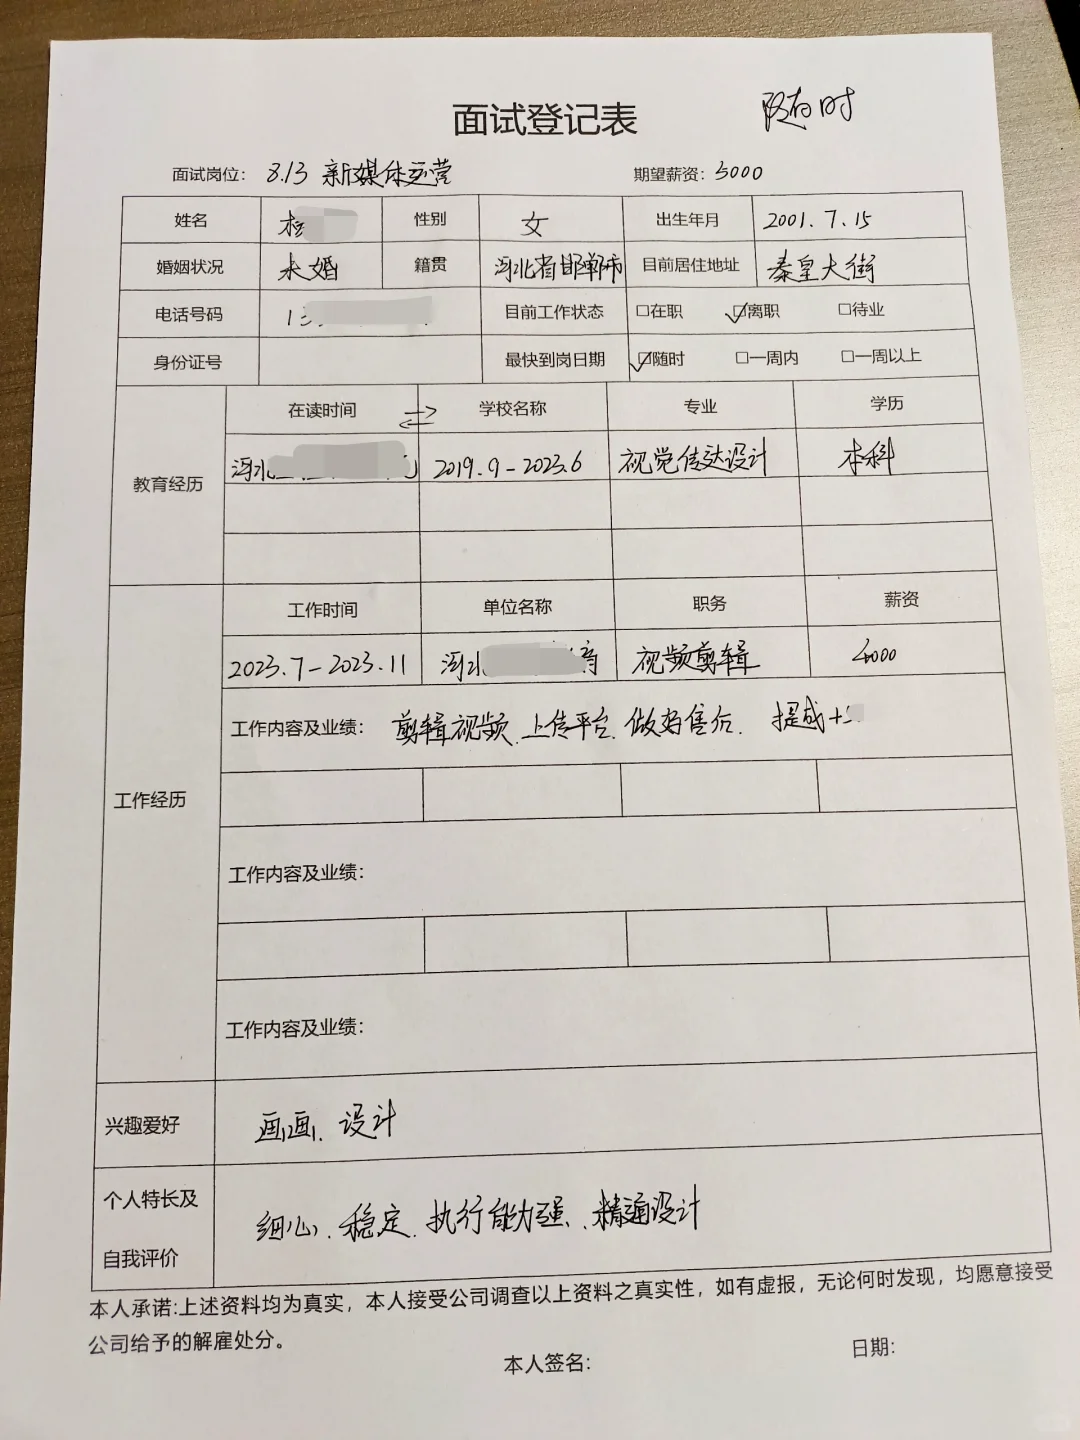 面试登记表 随时
面试岗位： 8.13 新媒体运营 期望薪资：5000
姓名 性别 女 出生年月 2001.7.15
婚姻状况 未婚 籍贯 河北省邯郸市 目前居住地址 秦皇大街
电话号码 13 目前工作状态 □在职 ☑离职 □待业
身份证号 最快到岗日期 ☑随时 □一周内 □一周以上
教育经历
在读时间 学校名称 专业 学历
河北 2019.9-2023.6 视觉传达设计 本科
工作经历
工作时间 单位名称 职务 薪资
2023.7-2023.11 河北 视频剪辑
工作内容及业绩： 剪辑视频、上传平台、做好售后、 提成+
工作内容及业绩：
工作内容及业绩：
兴趣爱好 画画、设计
个人特长及
自我评价 细心、稳定、执行能力强、精通设计
本人承诺:上述资料均为真实，本人接受公司调查以上资料之真实性，如有虚报，无论何时发现，均愿意接受
公司给予的解雇处分。
本人签名： 日期：